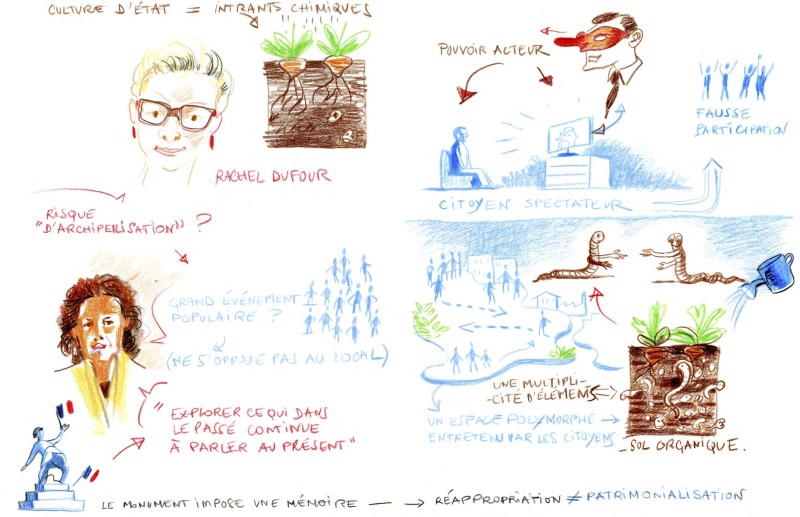 CULTURE D'ÉTAT = INTRANTS CHIMIQUES
RACHEL DUFOUR
RISQUE
"D'ARCHIPELISATION" ?
GRAND ÉVÉNEMENT
POPULAIRE ?
(NE S'OPPOSE PAS AU LOCAL)
"EXPLORER CE QUI DANS
LE PASSÉ CONTINUE
À PARLER AU PRÉSENT"
POUVOIR ACTEUR
FAUSSE
PARTICIPATION
CITOYEN SPECTATEUR
UNE MULTIPLI-
-CITÉ D'ÉLÉMENTS
UN ESPACE POLYMORPHE
ENTRETENU PAR LES CITOYENS
SOL ORGANIQUE.
LE MONUMENT IMPOSE UNE MÉMOIRE → RÉAPPROPRIATION ≠ PATRIMONIALISATION